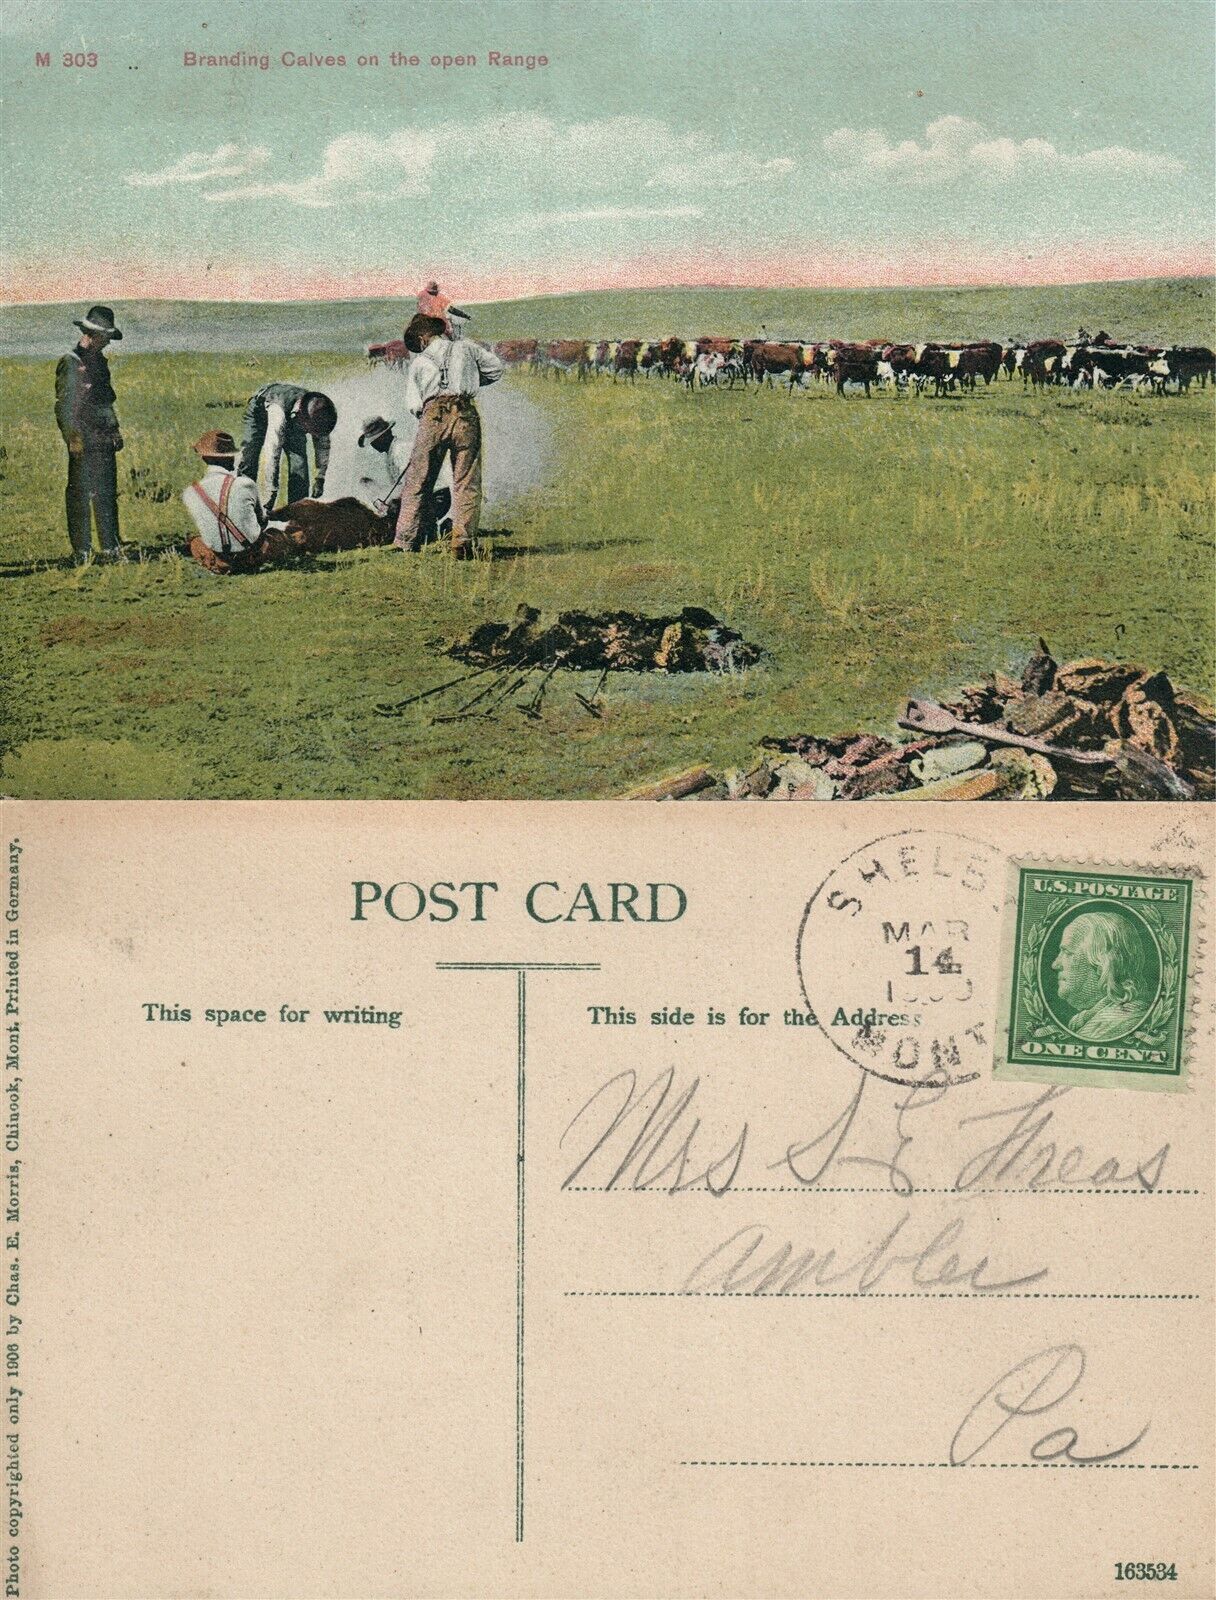 M 303 Branding Calves on the open Range
Photo copyrighted only 1906 by Chas. E. Morris, Chinook, Mont. Printed in Germany.
POST CARD
This space for writing
This side is for the Address
SHELB
MAR
14
MONT
U.S. POSTAGE
ONE CENT
Mrs S E Freas
Ambler
Pa
163534